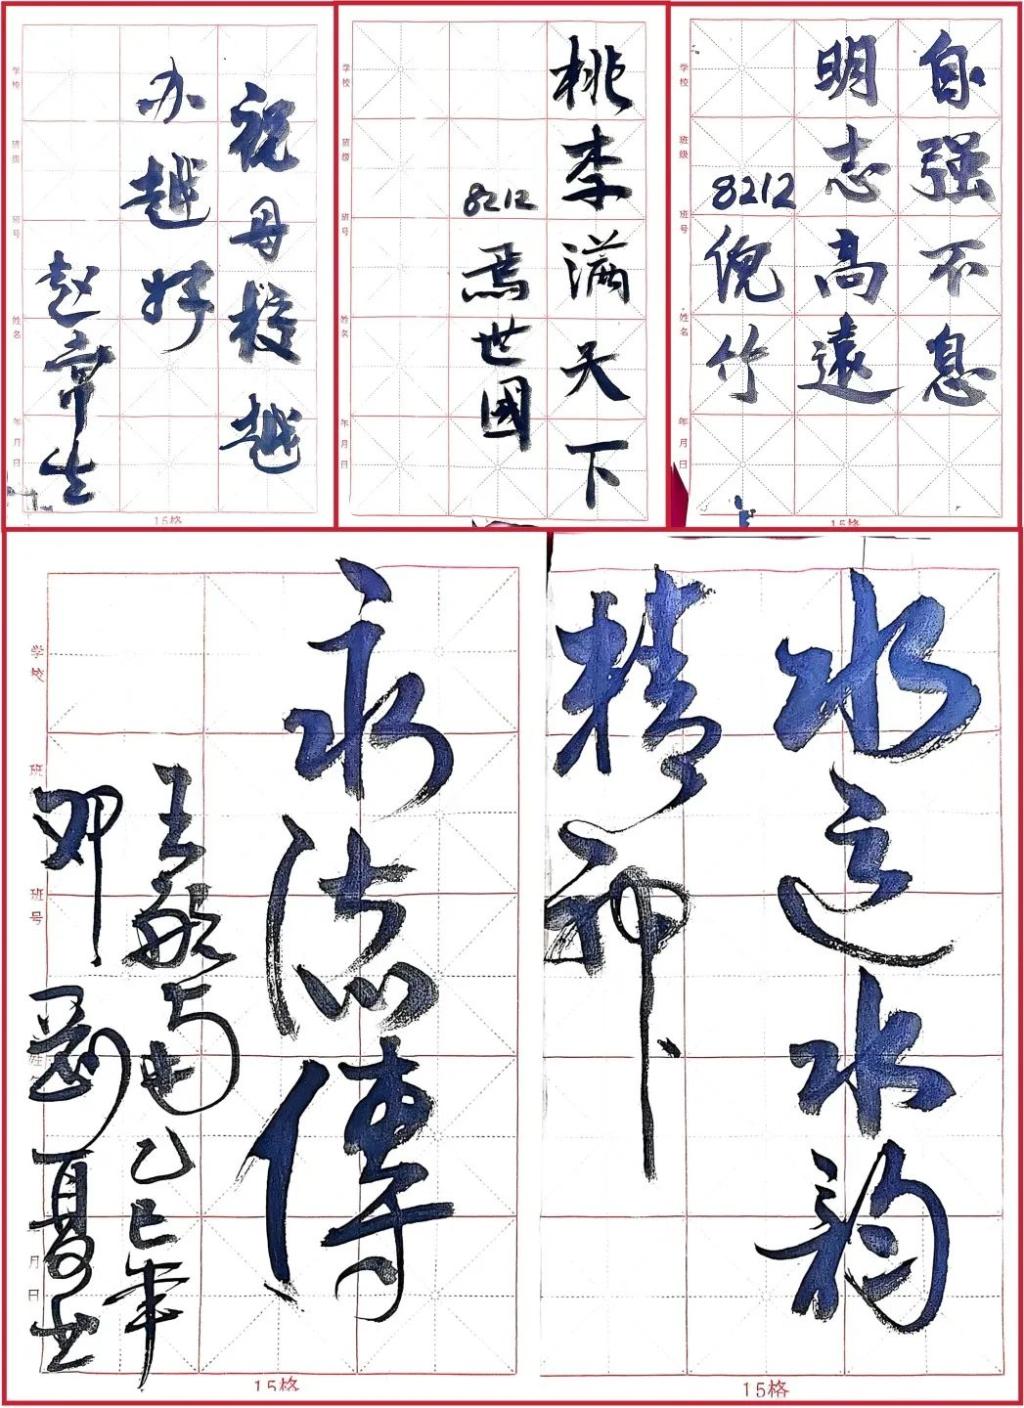 祝母校越
办越好
赵常生
学校
班级
班号
姓名
年月日
15格
桃李满天下
8212
焉世國
学校
班级
班号
姓名
年月日
自强不息
明志高遠
8212
倪竹
学校
班级
班号
姓名
年月日
15格
水远水韵
精神
15格
永志傳
乙巳年
邓
夏书
学校
班
班号
月
日
15格